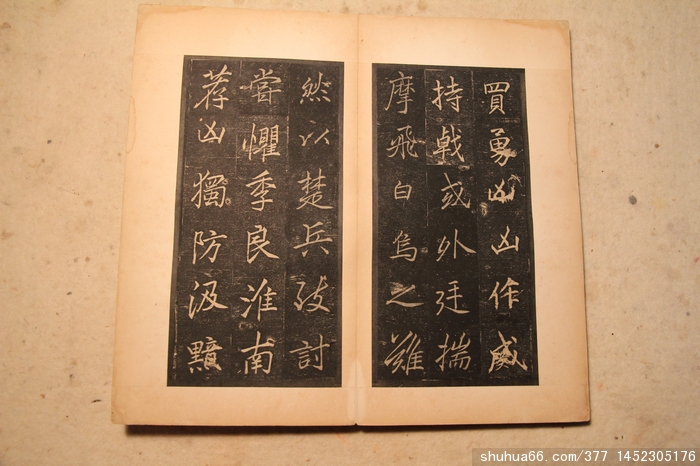 買勇凶凶作威
持戟或外廷揣
摩飛白烏之難
然以楚兵致討
嘗懼季良淮南
荐凶獨防汲黯
shuhua66.com/377 1452305176